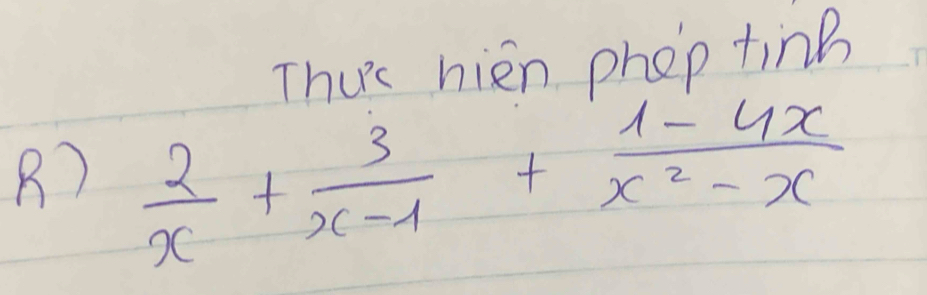 Thực hiện phép tính
R) 2/x + 3/(x-1) + (1-4x)/(x²-x)